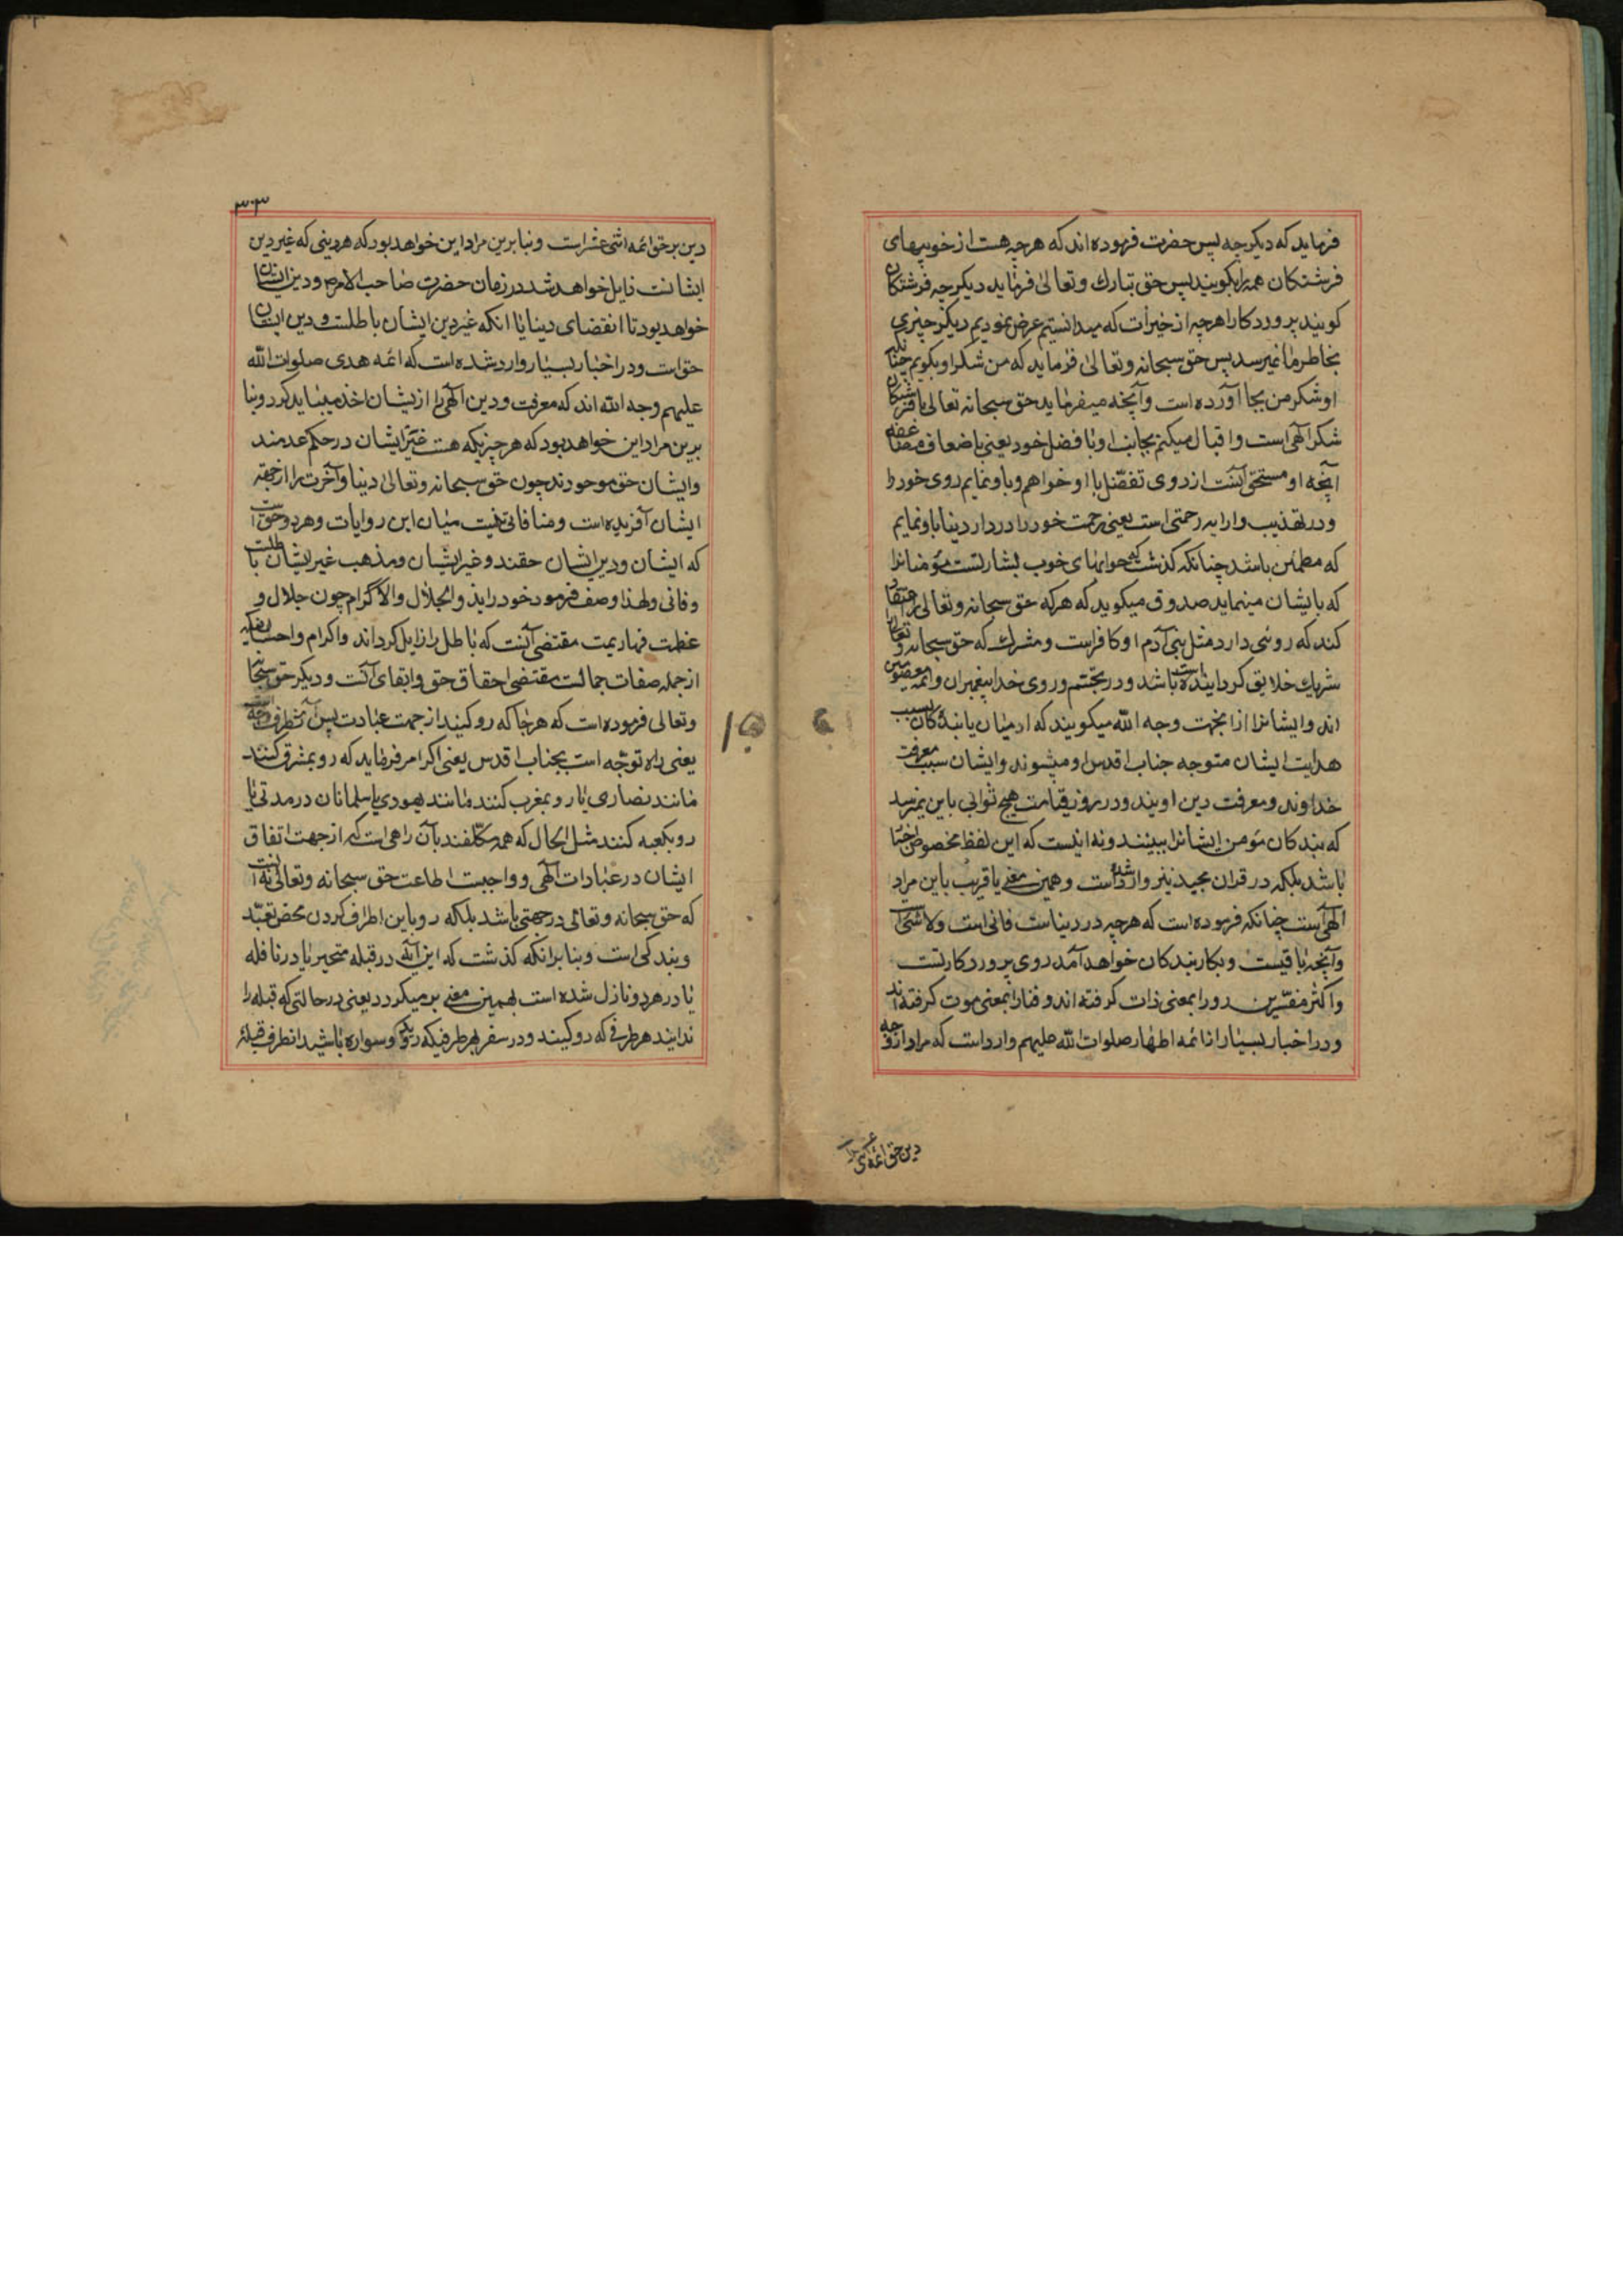 فرماید که دیکر چه پس حضرت فرموده اند که هر چه هست از خوبیهای
فرشتکان همه را بکویند پس حق تبارک وتعالی فرماید دیکر چه فرشتکان
کویند پروردکارا هر چه از خیرات که میدانستیم عرض نمودیم دیکر چیزی
بخاطر ما نمیرسد پس حق سبحانه وتعالی فرماید که من شکر او بکویم چنانکه
او شکر من بجا آورده است وآنچه میفرماید حق سبحانه تعالی با فرشتکان
شکر آلهی است واقبال میکنم بجانب او با فضل خود یعنی باضعاف مضاعفه
آنچه او مستحق آنست از روی تفضّل با او خواهم وباو نمایم روی خود را
ودر تهذیب وارایه رحمتی است یعنی رحمت خود را در دار دنیا باو نمایم
که مطمئن باشد چنانکه کذشت که خوابهای خوب بشارتست مؤمنانرا
که بایشان مینماید صدوق میکوید که هر که حق سبحانه وتعالی را اعتقاد
کند که روئی دارد مثل بنی آدم او کافراست ومشرک که حق سبحانه وتعالی را
شریک خلایق کردانیده باشد ودر تجشّم وروی خدا پیغمبران وائمه معصومین
اند وایشانرا از اینجهت وجه الله میکویند که از میان بندکان بسبب
هدایت ایشان متوجه جناب اقدس او میشوند وایشان سبب معرفت
خداوند ومعرفت دین اویند ودر روز قیامت هیچ ثوابی باین نمیرسد
که بندکان مؤمن ایشانرا ببینند ونه اینست که این لفظ مخصوص اخبار
باشد بلکه در قران مجید نیز وارد شده است وهمین معنی یا قریب باین مراد
الهی است چنانکه فرموده است که هر چه در دنیاست فانی است ولا شئ
وآنچه باقیست وبکار بندکان خواهد آمد روی پروردکار تست
واکثر مفسّرین رو را بمعنی ذات کرفته اند وفنا را بمعنی موت کرفته اند
ودر اخبار بسیار از ائمه اطهار صلوات الله علیهم وارد است که مراد از وجه
دین حق ائمه
۳۰۳
دین بر حق ائمه اثنی عشراست وبنا برین مراد این خواهد بود که هر دینی که غیر دین
ایشانست زایل خواهد شد در زمان حضرت صاحب الامر ودین ایشان
خواهد بود تا انقضای دنیا یا انکه غیر دین ایشان باطلست ودین ایشان
حق است ودر اخبار بسیار وارد شده است که ائمه هدی صلوات الله
علیهم وجه الله اند که معرفت ودین آلهی را از یشان اخذ میباید کرد وبنا
برین مراد این خواهد بود که هر چیزیکه هست غیر ایشان در حکم عدمند
وایشان حق موجودند چون حق سبحانه وتعالی دنیا وآخرت را از جهة
ایشان آفریده است ومنافاتی نیست میان این روایات وهر دو حق است
که ایشان ودین ایشان حقند وغیر ایشان ومذهب غیر ایشان باطلست
وفانی ولهذا وصف فرمود خود را بذو الجلال والاکرام چون جلال و
عظمت قهاریت مقتضی آنست که باطل را زایل کرداند واکرام واحسانیکه
از جمله صفات جمالست مقتضی احقاق حق وابقای آنست ودیکر حق سبحانه
وتعالی فرموده است که هر جا که رو کنید از جهت عبادت پس آنطرف وجه الله است
یعنی راه توجّه است بجناب اقدس یعنی اکر امر فرماید که رو بمشرق کنند
مانند نصاری یا رو بمغرب کنند مانند یهود یا مسلمانان در مدتی یا
رو بکعبه کنند مثل الحال که همه مکلّفند بآن راهی است که از جهت اتفاق
ایشان در عبادات آلهی وواجبست اطاعت حق سبحانه وتعالی نه آنست
که حق سبحانه وتعالی در جهتی باشد بلکه رو باین اطراف کردن محض تعبّد
وبندکی است وبنا برانکه کذشت که این آیه در قبله متحیر یا در نافله
یا در هر دو نازل شده است بهمین معنی بر میکردد یعنی در حالتی که قبله را
ندانید هر طرفی که رو کنید ودر سفر بهر طرفیکه رو کنید وسواره باشید انطرف قبله